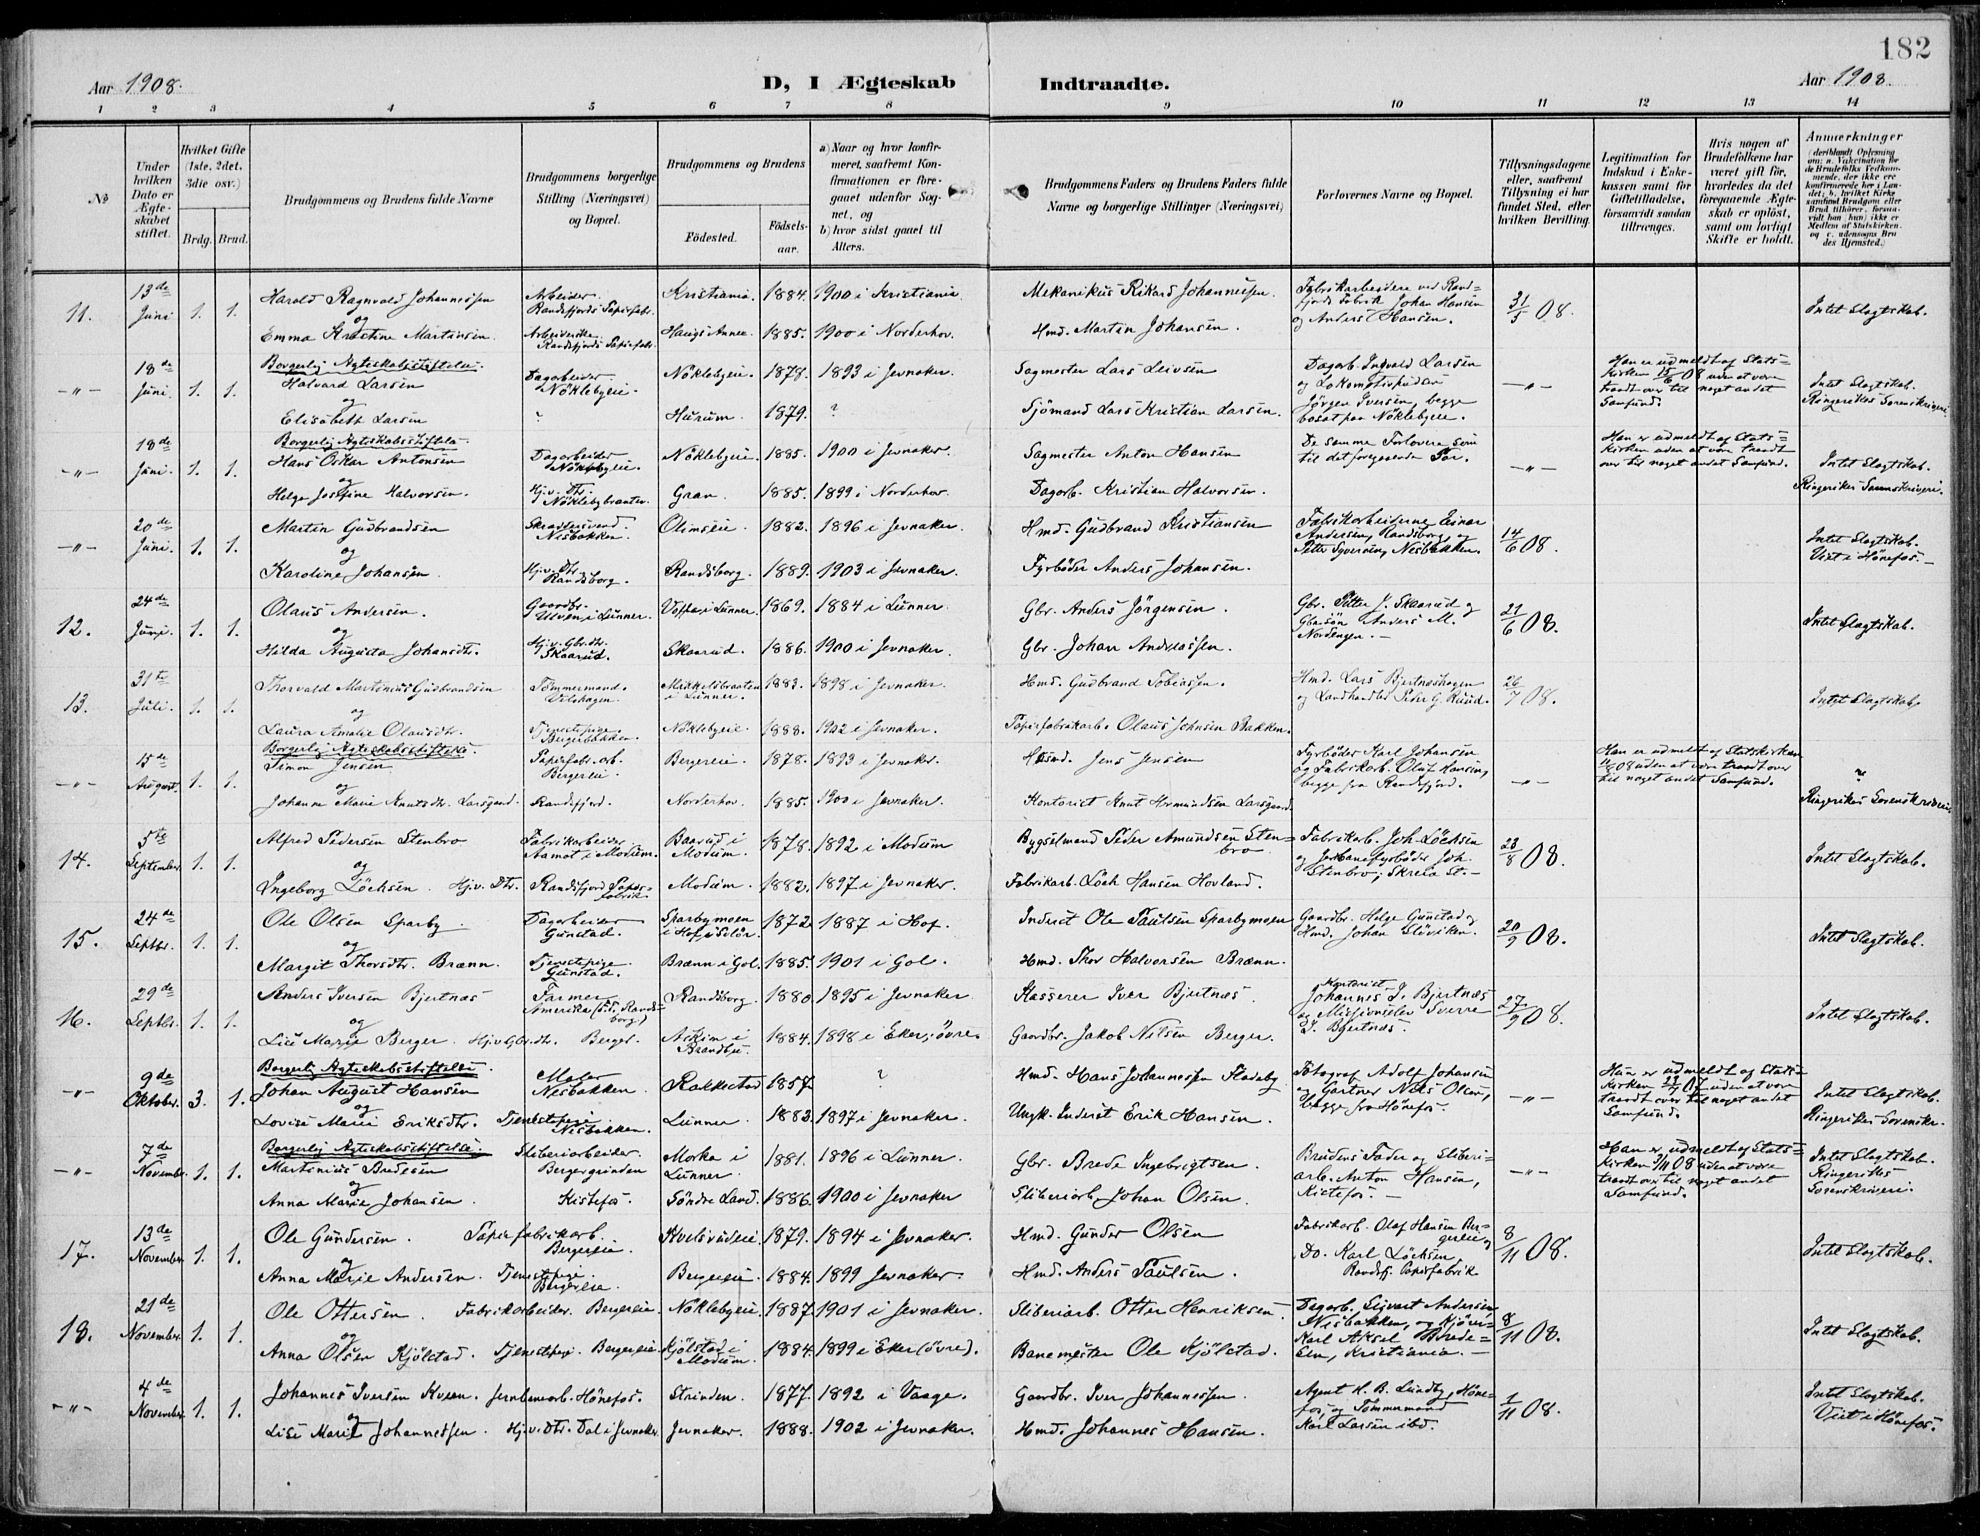 182
Aar 1908.
D, I Ægteskab Indtraadte.
Aar 1908.
1 2 3 4 5 6 7 8 9 10 11 12 13 14
№
Under hvilken Dato er Ægteskabet stiftet.
Hvilket Gifte (1ste, 2det, 3die osv.)
Brdg. Brud.
Brudgommens og Brudens fulde Navne
Brudgommens borgerlige Stilling (Næringsvei) og Bopæl.
Brudgommens og Brudens
Fødested. Fødselsaar.
a) Naar og hvor konfirmeret, saafremt Konfirmationen er foregaaet udenfor Sognet, og
b) hvor sidst gaaet til Alters.
Brudgommens Faders og Brudens Faders fulde Navne og borgerlige Stillinger (Næringsvei)
Forlovernes Navne og Bopæl.
Tillysningsdagene eller, saafremt Tillysning ei har fundet Sted, efter hvilken Bevilling.
Legitimation for Indskud i Enkekassen samt for Giftetilladelse, forsaavidt saadan tiltrænges.
Hvis nogen af Brudefolkene har været gift før, hvorledes da det foregaaende Ægteskab er opløst, samt om lovligt Skifte er holdt.
Anmærkninger
11. 13de Juni 1. 1.
Harald Ragnvald Johannessen Arbeider. Randsfjords Papirfabr. Kristiania. 1884. 1900 i Kristiania Mekanikus Rikard Johannessen. Fabrikarbeidere ved Randsfjords Fabrik Johan Hansen og Anders Hansen. 31/5 08. Intet Slagtskab.
og
Emma Kristine Martinsen Arbeiderske Randsfjords Papirfabr. Haugs Annex 1885. 1900 i Norderhov. Hmd. Martin Johansen.
-"- 18de Juni. 1. 1.
Borgerlig Ægteskabsstiftelse.
Halvard Larsen Dagarbeider Nöklebyeie. Nöklebyeie. 1878. 1893 i Jevnaker. Sagmester Lars Leivsen Dagarb. Ingvald Larsen og Lokomotivpudser Jörgen Iversen, begge bosat paa Nöklebyeie. -"- Han er udmeldt af Statskirken 15/6 08 uden at være traadt over til noget andet Samfund. Intet Slagtskab. Ringerikes Sorenskriveri
og
Elisabeth Larsen ? Hurum. 1879. ? Sjömand Lars Kristian Larsen.
-"- 18de Juni. 1. 1.
Borgerlig Ægteskabsstiftelse
Hans Oskar Antonsen Dagarbeider Nöklebyeie. Nöklebyeie. 1885. 1900 i Jevnaker. Sagmester Anton Hansen De samme Forlovere som til det foregaaende Par. -"- Han er udmeldt af Statskirken uden at være traadt over til noget andet Samfund. Intet Slagtskab. Ringerikes Sorenskriveri.
og
Helga Josefine Halvorsen. Hjv. Dtr. Nöklebybraaten. Gran. 1885. 1899 i Norderhov. Dagarb. Kristian Halvorsen.
-"- 20de Juni. 1. 1.
Martin Gudbrandsen Skrædersvend. Nesbakken. Olimseie. 1882. 1896 i Jevnaker. Hmd. Gudbrand Kristiansen Fabrikarbeiderne Einar Andersen, Randsborg, og Petter Syversen, Nesbakken. 14/6 08. Intet Slagtskab. Viet i Hönefos.-
og
Karoline Johansen Hjv. Dtr. Randsborg. Randsborg. 1889. 1903 i Jevnaker. Fyrböder Anders Johansen.
12. 24de Juni. 1. 1.
Olaus Andersen. Gaardbr. Ulven i Lunner. i Lunner. 1869. 1884 i Lunner. Gbr. Anders Jörgensen. Gbr. Petter J. Skaarud og Gbr.sön Anders M. Nordengen.- 21/6 08. Intet Slagtskab.
og
Hilda Augusta Johansdtr. Hjv. Gbr.dtr. Skaarud. Skaarud. 1886. 1900 i Jevnaker. Gbr. Johan Andreassen.
13. 31te Juli. 1. 1.
Thorvald Martinius Gudbrandsen Tömmermand. Mikkelsbraaten i Lunner. 1883. 1898 i Jevnaker. Hmd. Gudbrand Tobiassen. Hmd. Lars Bjertneshagen og Landhandler Peter G. Ruud. 26/7 08. Intet Slagtskab.
og
Laura Amalie Olausdtr. Tjenestepige Bergerbakken. Nöklebyeie. 1888. 1902 i Jevnaker. Papirfabrikarb. Olaus Johnsen Bakken.
-"- 15de August. 1. 1.
Borgerlig Ægteskabsstiftelse.
Simon Jensen Papirfabr.arb. Bergereie. Bergereie. 1878. 1893 i Jevnaker. Husmd. Jens Jensen Fyrböder Karl Johansen og Fabrikarb. Oluf Hansen, begge fra Randsfjord. -"- Han er udmeldt af Statskirken 08 uden at være traadt over til noget andet Samfund. ? Ringerikes Sorenskriveri
og
Johanne Marie Knutsdtr. Larsgaard. Randsfjord. Norderhov. 1885. 1900 i Jevnaker. Kontorist Knut Larsgaard
14. 5te September. 1. 1.
Alfred Pedersen Stenbro Fabrikarbeider. Aamot i Modum. Baarud i Modum. 1878. 1892 i Modum Bygselmand Peder Amundsen Stenbro Fabrikarb. Joh. Löchsen og Jernbanefyrböder Joh. Stenbro, St.- 23/8 08. Intet Slagtskab.
og
Ingeborg Löchsen. Hjv. Dtr. Randsfjord Papirfabrik Modum. 1882. 1897 i Jevnaker. Fabrikarb. Löch Hansen Hovland.
15. 24de Septbr. 1. 1.
Ole Olsen Sparby. Dagarbeider Gunstad. Sparbymoen i Hof i Solör. 1872 1887 i Hof. Inderst Ole Paulsen Sparbymoen Gaardbr. Helge Gunstad og Hmd. Johan Slöviken. 20/9 08. Intet Slagtskab.
og
Margit Thorsdtr. Brænn. Tjenestepige Gunstad. Brænn i Gol. 1885. 1901 i Gol. Hmd. Thor Halvorsen Brænn.
16. 29de Septbr. 1. 1.
Anders Iversen Bjertnæs Farmer Amerika (p.t. Randsborg.) Randsborg. 1880 1895 i Jevnaker Kasserer Iver Bjertnæs. Kontorist Johannes I. Bjertnæs og Missionselev Sverre I. Bjertnæs. 27/9 08. Intet Slagtskab.
og
Lise Marie Berger. Hjv. Gbr.dtr. Berger. Askim i Brandbu. 1884. 1898 i Eker, övre. Gaardbr. Jakob Nilsen Berger.
-"- 9de Oktober. 3. 1.
Borgerlig Ægteskabsstiftelse.
Johan August Hansen Maler Nesbakken. Rakkestad 1857 ? Hmd. Hans Johannessen Fladeby Fotograf Adolf Johansen og Gartner Nils Olsen, begge fra Hönefos. -"- Han er udmeldt af Statskirken 07 uden at være traadt over til noget andet Samfund. Intet Slagtskab. Ringerikes Sorenskr.
og
Lovise Marie Eriksdtr. Tjenestepige Nesbakken. Lunner. 1883. 1897 i Jevnaker. Ungk. Inderst Erik Hansen.
-"- 7de November. 1. 1.
Borgerlig Ægteskabsstiftelse.
Martinius Bredesen Sliberiarbeider. Bergergrinden Morka i Lunner. 1881. 1896 i Lunner. Gbr. Brede Ingebrigtsen. Brudens Fader og Sliberiarb. Anton Hansen, Kistefos.- -"- Han er udmeldt af Statskirken 7/11 08 uden at være traadt over til noget andet Samfund. Intet Slagtskab. Ringerikes Sorenskriveri.
og
Anna Marie Johansen. Kistefos. Söndre Land. 1886. 1900 i Jevnaker Sliberiarb. Johan Olsen.
17. 13de November. 1. 1.
Ole Gundersen. Papirfabrikarb. Bergereie. Kvelsrudeie. 1879. 1894 i Jevnaker. Hmd. Gunder Olsen Fabrikarb. Olaf Hansen Bergereie og Do. Karl Löchsen, Randsfj. Papirfabrik 8/11 08. Intet Slagtskab.
og
Anna Marie Andersen. Tjenestepige. Bergereie. Bergereie. 1884. 1899 Jevnaker. Hmd. Anders Paulsen.
18. 21de November. 1. 1.
Ole Ottersen. Fabrikarbeider. Bergereie. Nöklebyeie. 1887. 1901 i Jevnaker. Sliberiarb. Otter Henriksen Dagarb. Sigvart Andersen, Nesbakken, og Karl Aksel Bredesen, Kristiania.- 8/11 08. Intet Slagtskab.
og
Anna Olsen Kjölstad. Tjenestepige. Bergereie Kjölstad i Modum. 1884. 1899 i Eker (övre). Banemester Ole Kjölstad.
-"- 4de November. 1. 1.
Johannes Iversen Kveen. Jernbanearb. Hönefos. Strinden. 1877. 1892 i Vaage. Gaardbr. Iver Johannessen. Agent H. B. Lundby, Hönefos, og Tömmermand Karl Larsen ibd. 1/11 08. Intet Slagtskab. Viet i Hönefos.
og
Lise Marie Johannessen. Hjv. Dtr. Dal i Jevnaker. Jevnaker. 1888. 1902 i Jevnaker. Hmd. Johannes Hansen.